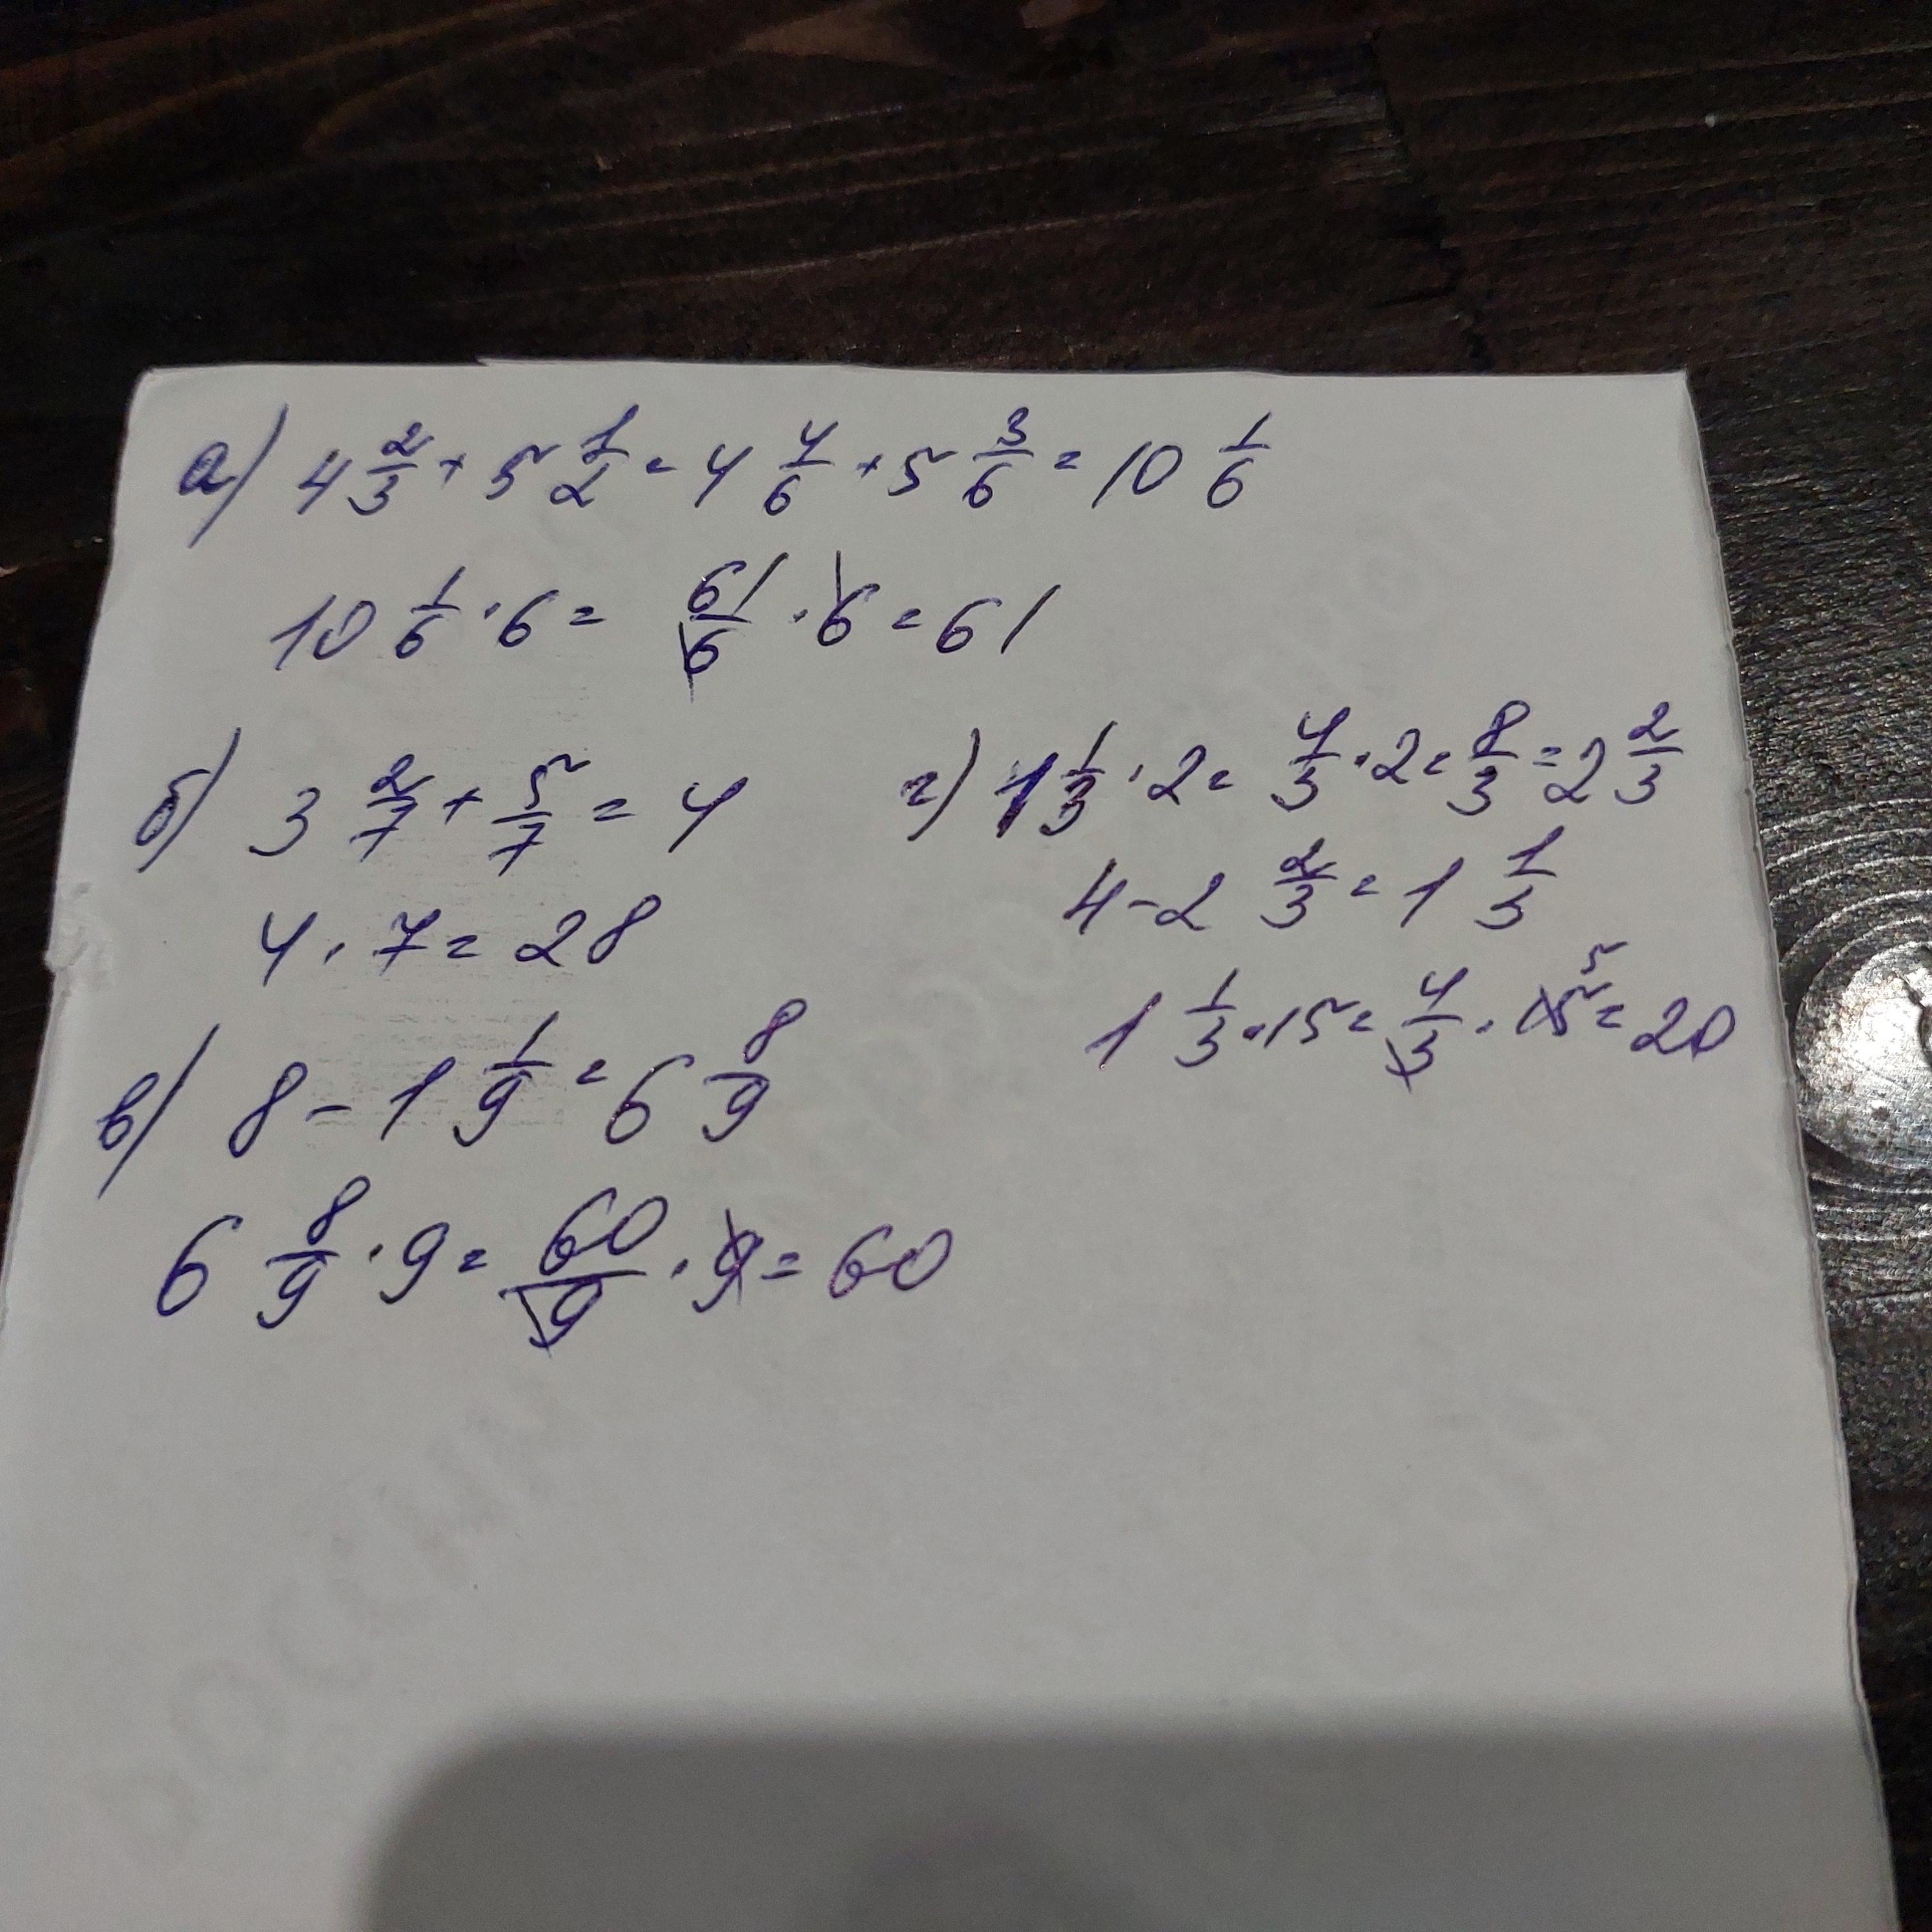 а) 4 2/3 + 5 1/2 = 4 4/6 + 5 3/6 = 10 1/6
10 1/6 · 6 = 61/6 · 6 = 61
б) 3 2/7 + 5/7 = 4
4 · 7 = 28
в) 8 - 1 1/9 = 6 8/9
6 8/9 · 9 = 60/9 · 9 = 60
г) 1 1/3 · 2 = 4/3 · 2 = 8/3 = 2 2/3
4 - 2 2/3 = 1 1/3
1 1/3 · 15 = 4/3 · 15 5 = 20